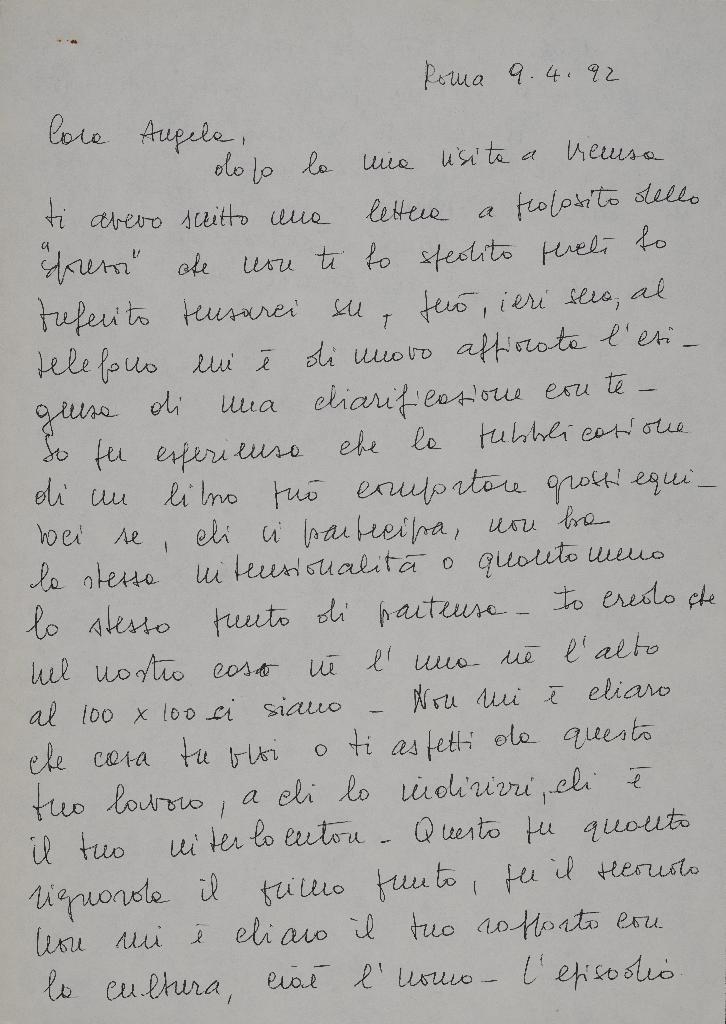 Roma 9.4.92
Cara Angela,
dopo la mia visita a Vicenza
ti avevo scritto una lettera a proposito dello
che non ti ho spedito perché ho
preferito pensarci su, però, ieri sera, al
telefono mi è di nuovo affiorata l'esi-
genza di una chiarificazione con te -
So per esperienza che la pubblicazione
di un libro può comportare grossi equi-
voci se, chi ci partecipa, non ha
la stessa intenzionalità o quanto meno
lo stesso punto di partenza - Io credo che
nel nostro caso nè l'una nè l'altro
al 100 x 100 ci siano - Non mi è chiaro
che cosa tu vuoi o ti aspetti da questo
tuo lavoro, a chi lo indirizzi, chi è
il tuo interlocutore - Questo per quanto
riguarda il primo punto, per il secondo
non mi è chiaro il tuo rapporto con
la cultura, cioè l'uomo - L'episodio